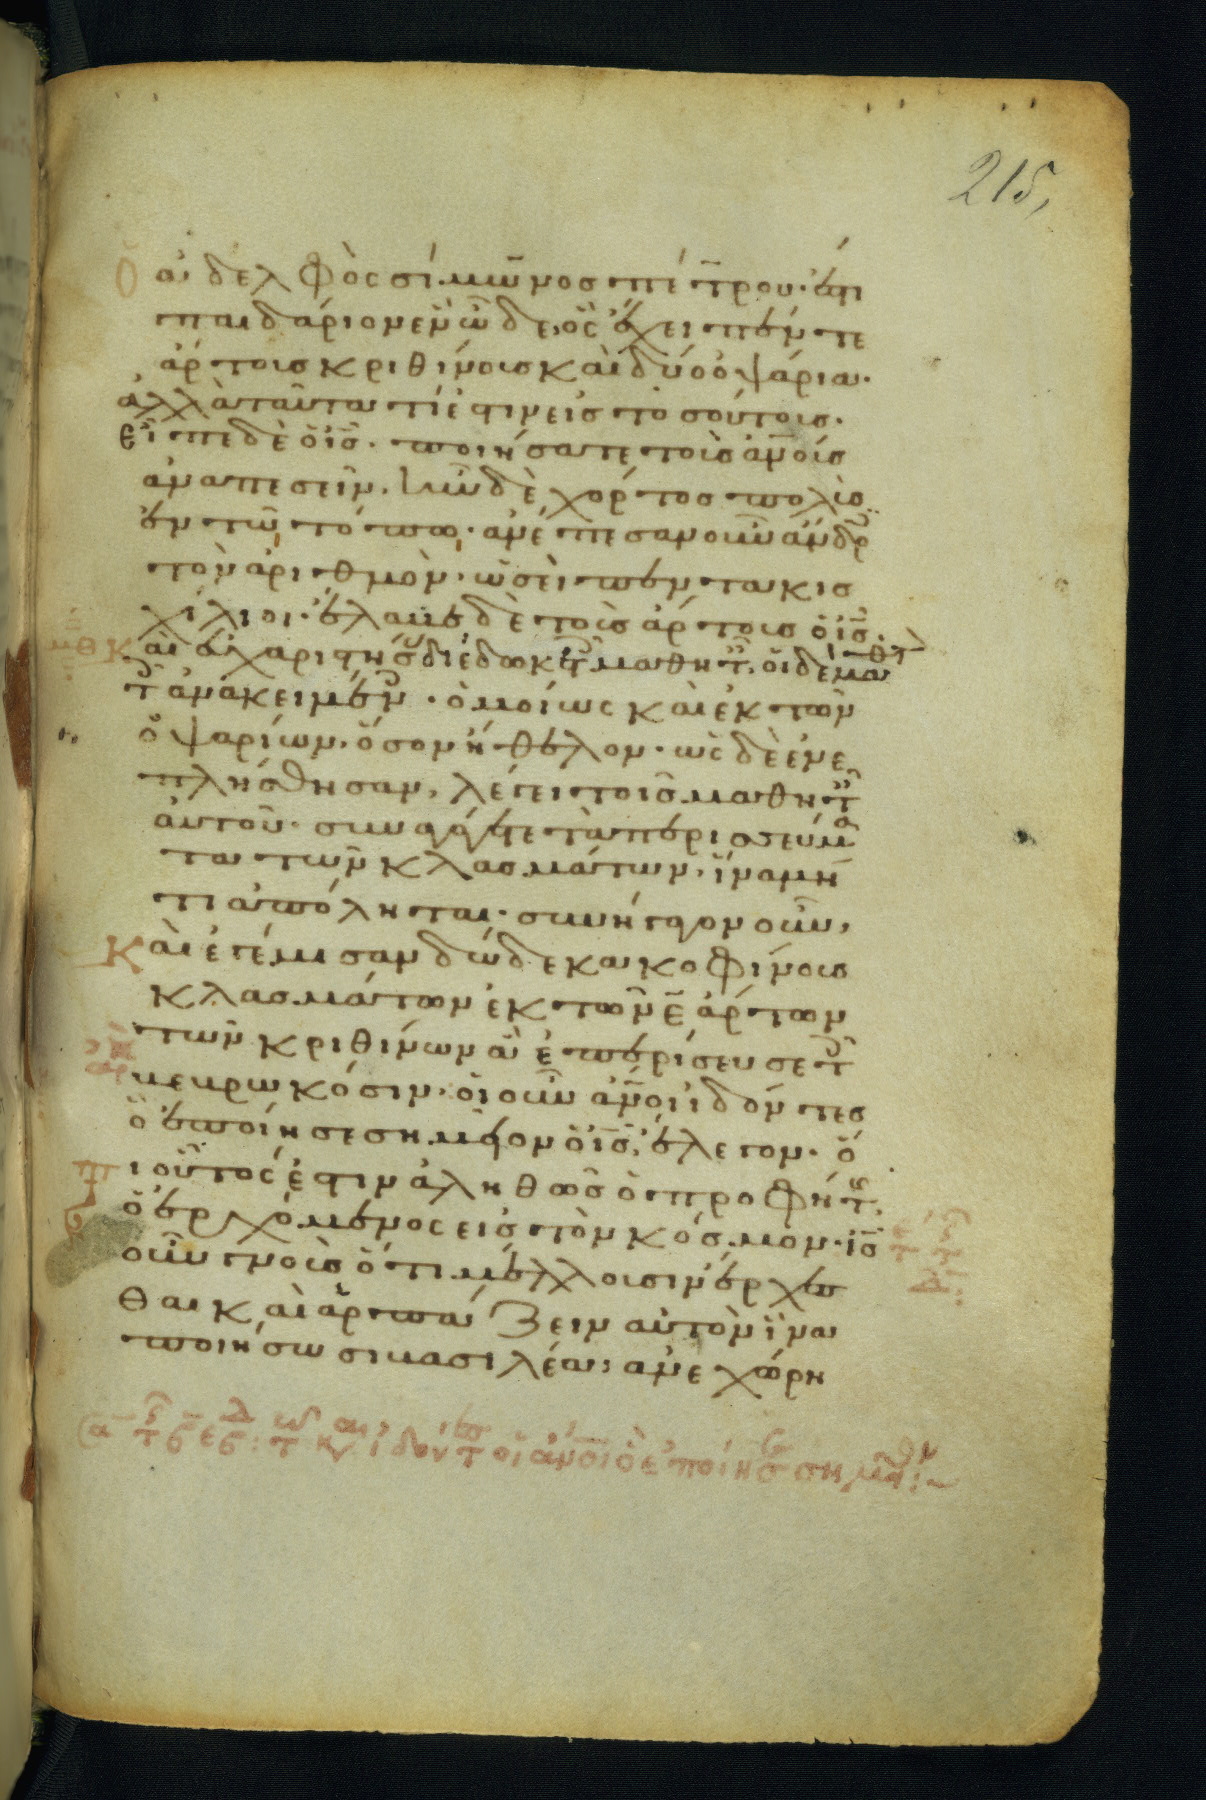 215,
ὁ ἀδελφὸς σίμωνος πέτρου· ἔστι
παιδάριον ἓν ὧδε, ὃς ἔχει πέντε
ἄρτους κριθίνους καὶ δύο ὀψάρια·
ἀλλὰ ταῦτα τί ἐστιν εἰς τοσούτους·
Εἶπε δὲ ὁ ις̅· ποιήσατε τοὺς α̅νο̅υς
ἀναπεσεῖν. ἦν δὲ χόρτος πολὺς
ἐν τῷ τόπω· ἀνέπεσαν οὖν ἄνδρ
τὸν ἀριθμὸν· ὡσεὶ πεντακισ
χίλιοι· ἔλαβε δὲ τοὺς ἄρτους ὁ ις̅·
Καὶ εὐχαριστήσ διέδωκε τ μαθητ, οἱ δὲ μαθτ
τ ἀνακειμέν· ὁμοίως καὶ ἐκ τῶν
ὀψαρίων, ὅσον ἤθελον· ὡς δὲ ἐνε
πλήσθησαν, λέγει τοῖς μαθητ
αὐτοῦ· συναγάγετε τὰ περισσεύμα
τα τῶν κλασμάτων, ἵνα μή
τι ἀπόληται· συνήγαγον οὖν,
Καὶ ἐγέμισαν δώδεκα κοφίνους
κλασμάτων ἐκ τῶν ε̅ ἄρτων
τῶν κριθίνων ἃ ἐπερίσευσε τ
βεβρωκόσιν· οἱ οὖν α̅νοι ἰδόντες
ὃ ἐποίησε σημεῖον ὁ ις̅, ἔλεγον· ὅ
τι οὗτός ἐστιν ἀληθῶς ὁ προφήτ,
ὁ ἐρχόμενος εἰς τὸν κόσμον· ις̅
οὖν γνοὺς ὅτι μέλλουσιν ἔρχεσ
θαι καὶ ἁρπάζειν αὐτὸν ἵνα
ποιήσωσι βασιλέα, ἀνεχώρη
ἰδόντ οἱ α̅νοι ὃ ἐποίησ σημεῖ:~